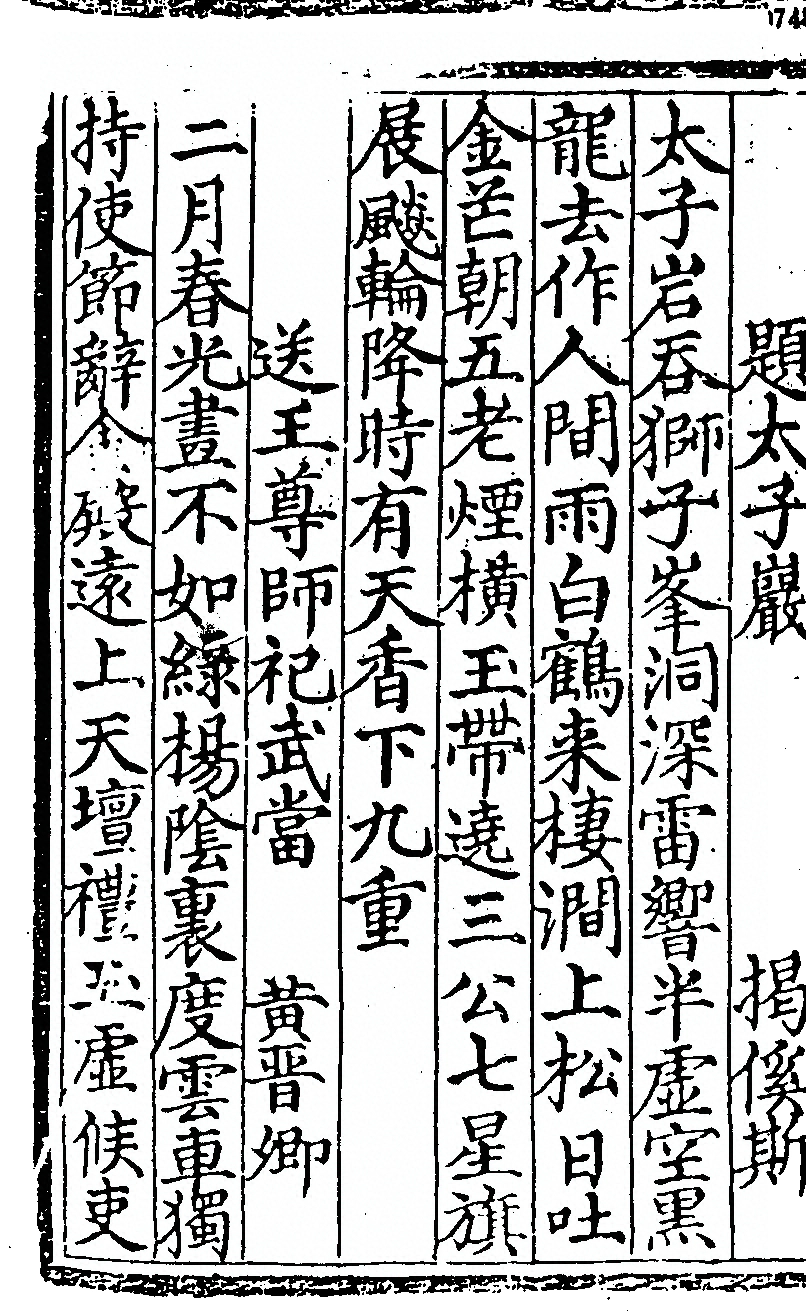 題太子巖 揭傒斯
太子岩吞獅子峯洞深雷響半虛空黑
龍去作人間雨白鶴来棲澗上松日吐
金芒朝五老煙橫玉帶遶三公七星旗
展飈輪降時有天香下九重
送王尊師祀武當 黃晋卿
二月春光晝不如綠楊隂裏度雲車獨
持使節辭金殿遠上天壇禮玉虛候吏